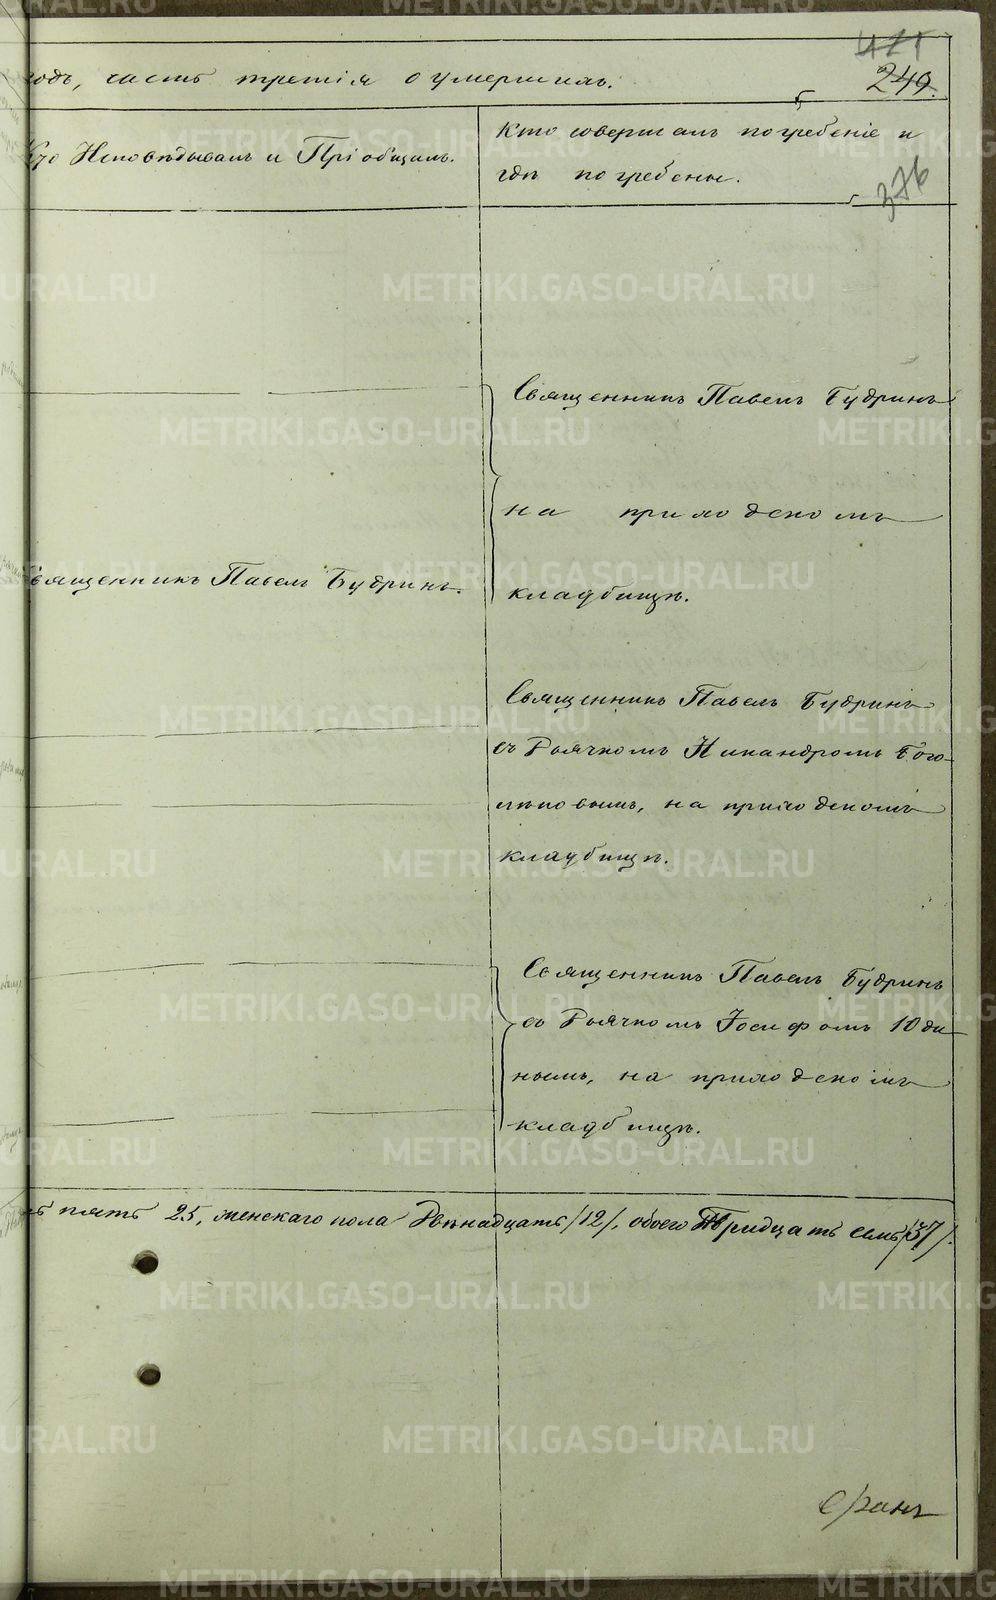 411
годъ, часть третія о умершихъ.
249.
Кто Исповѣдывалъ и Пріобщилъ.
Кто совершалъ погребеніе и
гдѣ погребены.
376
Священникъ Павелъ Будринъ
на приходскомъ
Священникъ Павелъ Будринъ.
кладбищѣ.
Священникъ Павелъ Будринъ
съ Дьячкомъ Никандромъ Бого-
лѣповымъ, на приходскомъ
кладбищѣ.
Священникъ Павелъ Будринъ
съ Дьячкомъ Іосифомъ Юди
нымъ, на приходскомъ
кладбищѣ.
пять 25, женскаго пола Двѣнадцать /12/, обоего Тридцать семь /37/.
METRIKI.GASO-URAL.RU